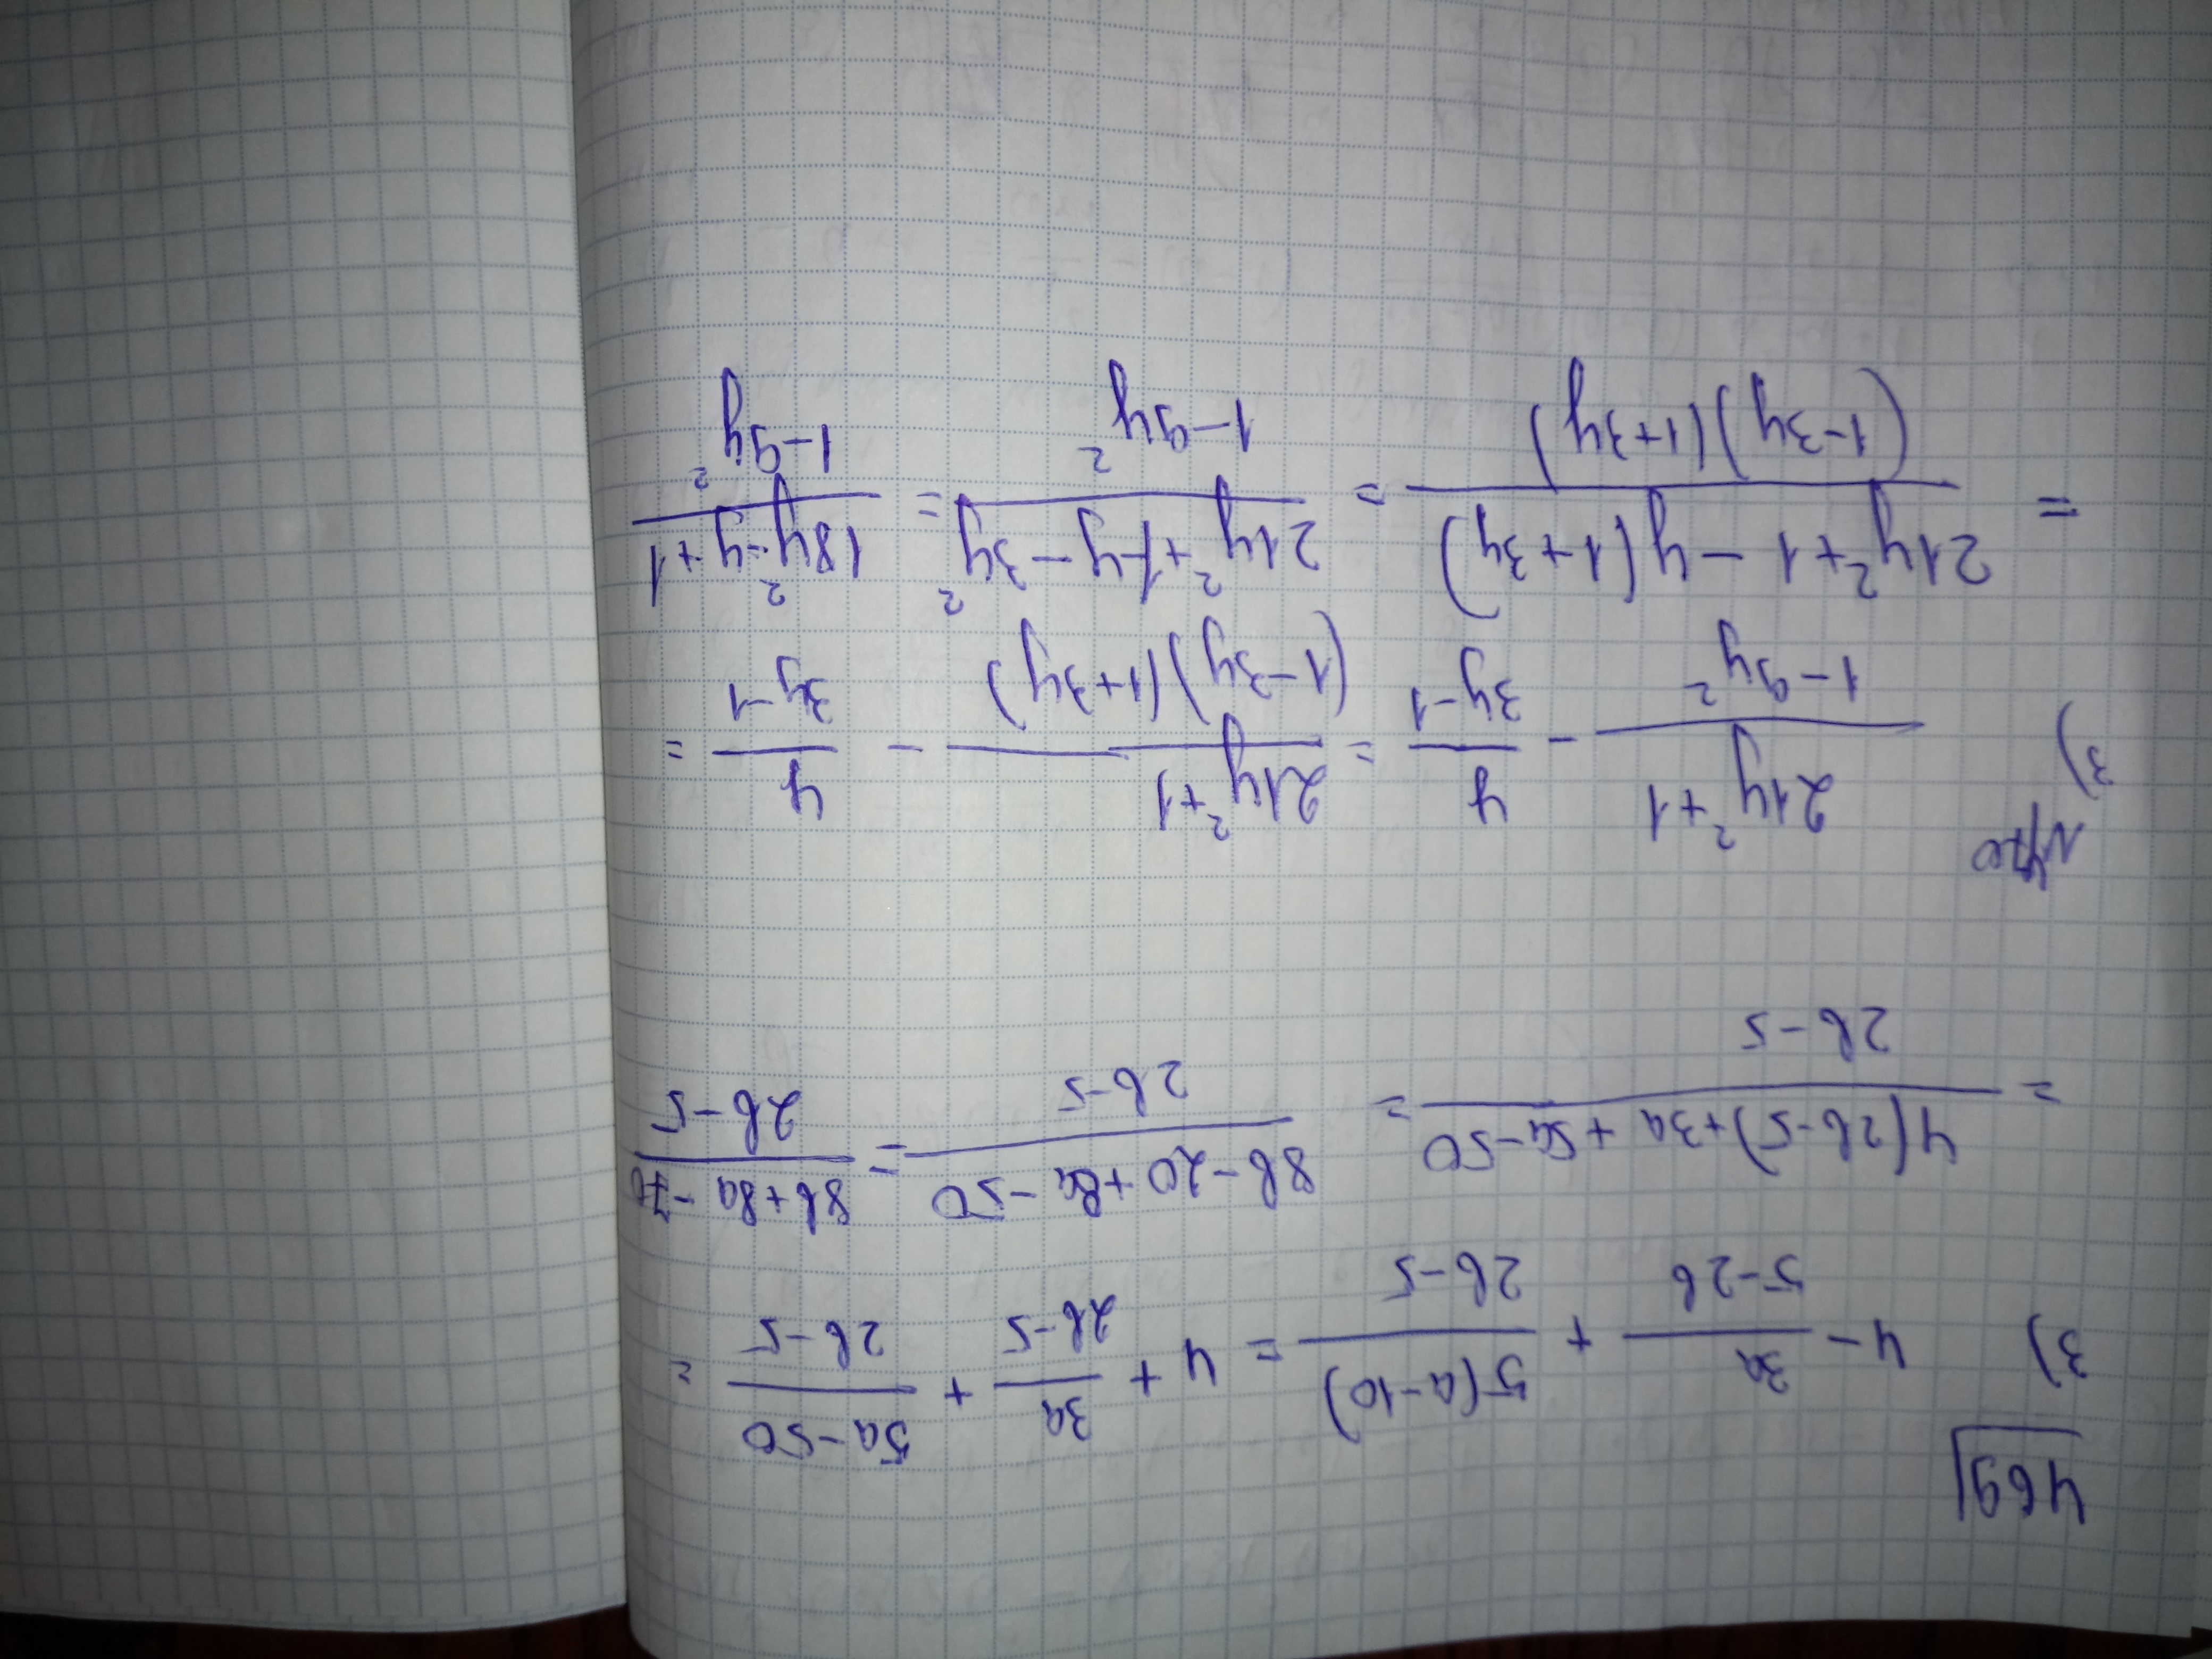 469
3) 4 - 3a/(5-2b) + 5(a-10)/(2b-5) = 4 + 3a/(2b-5) + (5a-50)/(2b-5) =
= (4(2b-5)+3a+5a-50)/(2b-5) = (8b-20+8a-50)/(2b-5) = (8b+8a-70)/(2b-5)
N470
3) (21y²+1)/(1-9y²) - y/(3y-1) = (21y²+1)/((1-3y)(1+3y)) - y/(3y-1) =
= (21y²+1-y(1+3y))/((1-3y)(1+3y)) = (21y²+1-y-3y²)/(1-9y²) = (18y²-y+1)/(1-9y²)